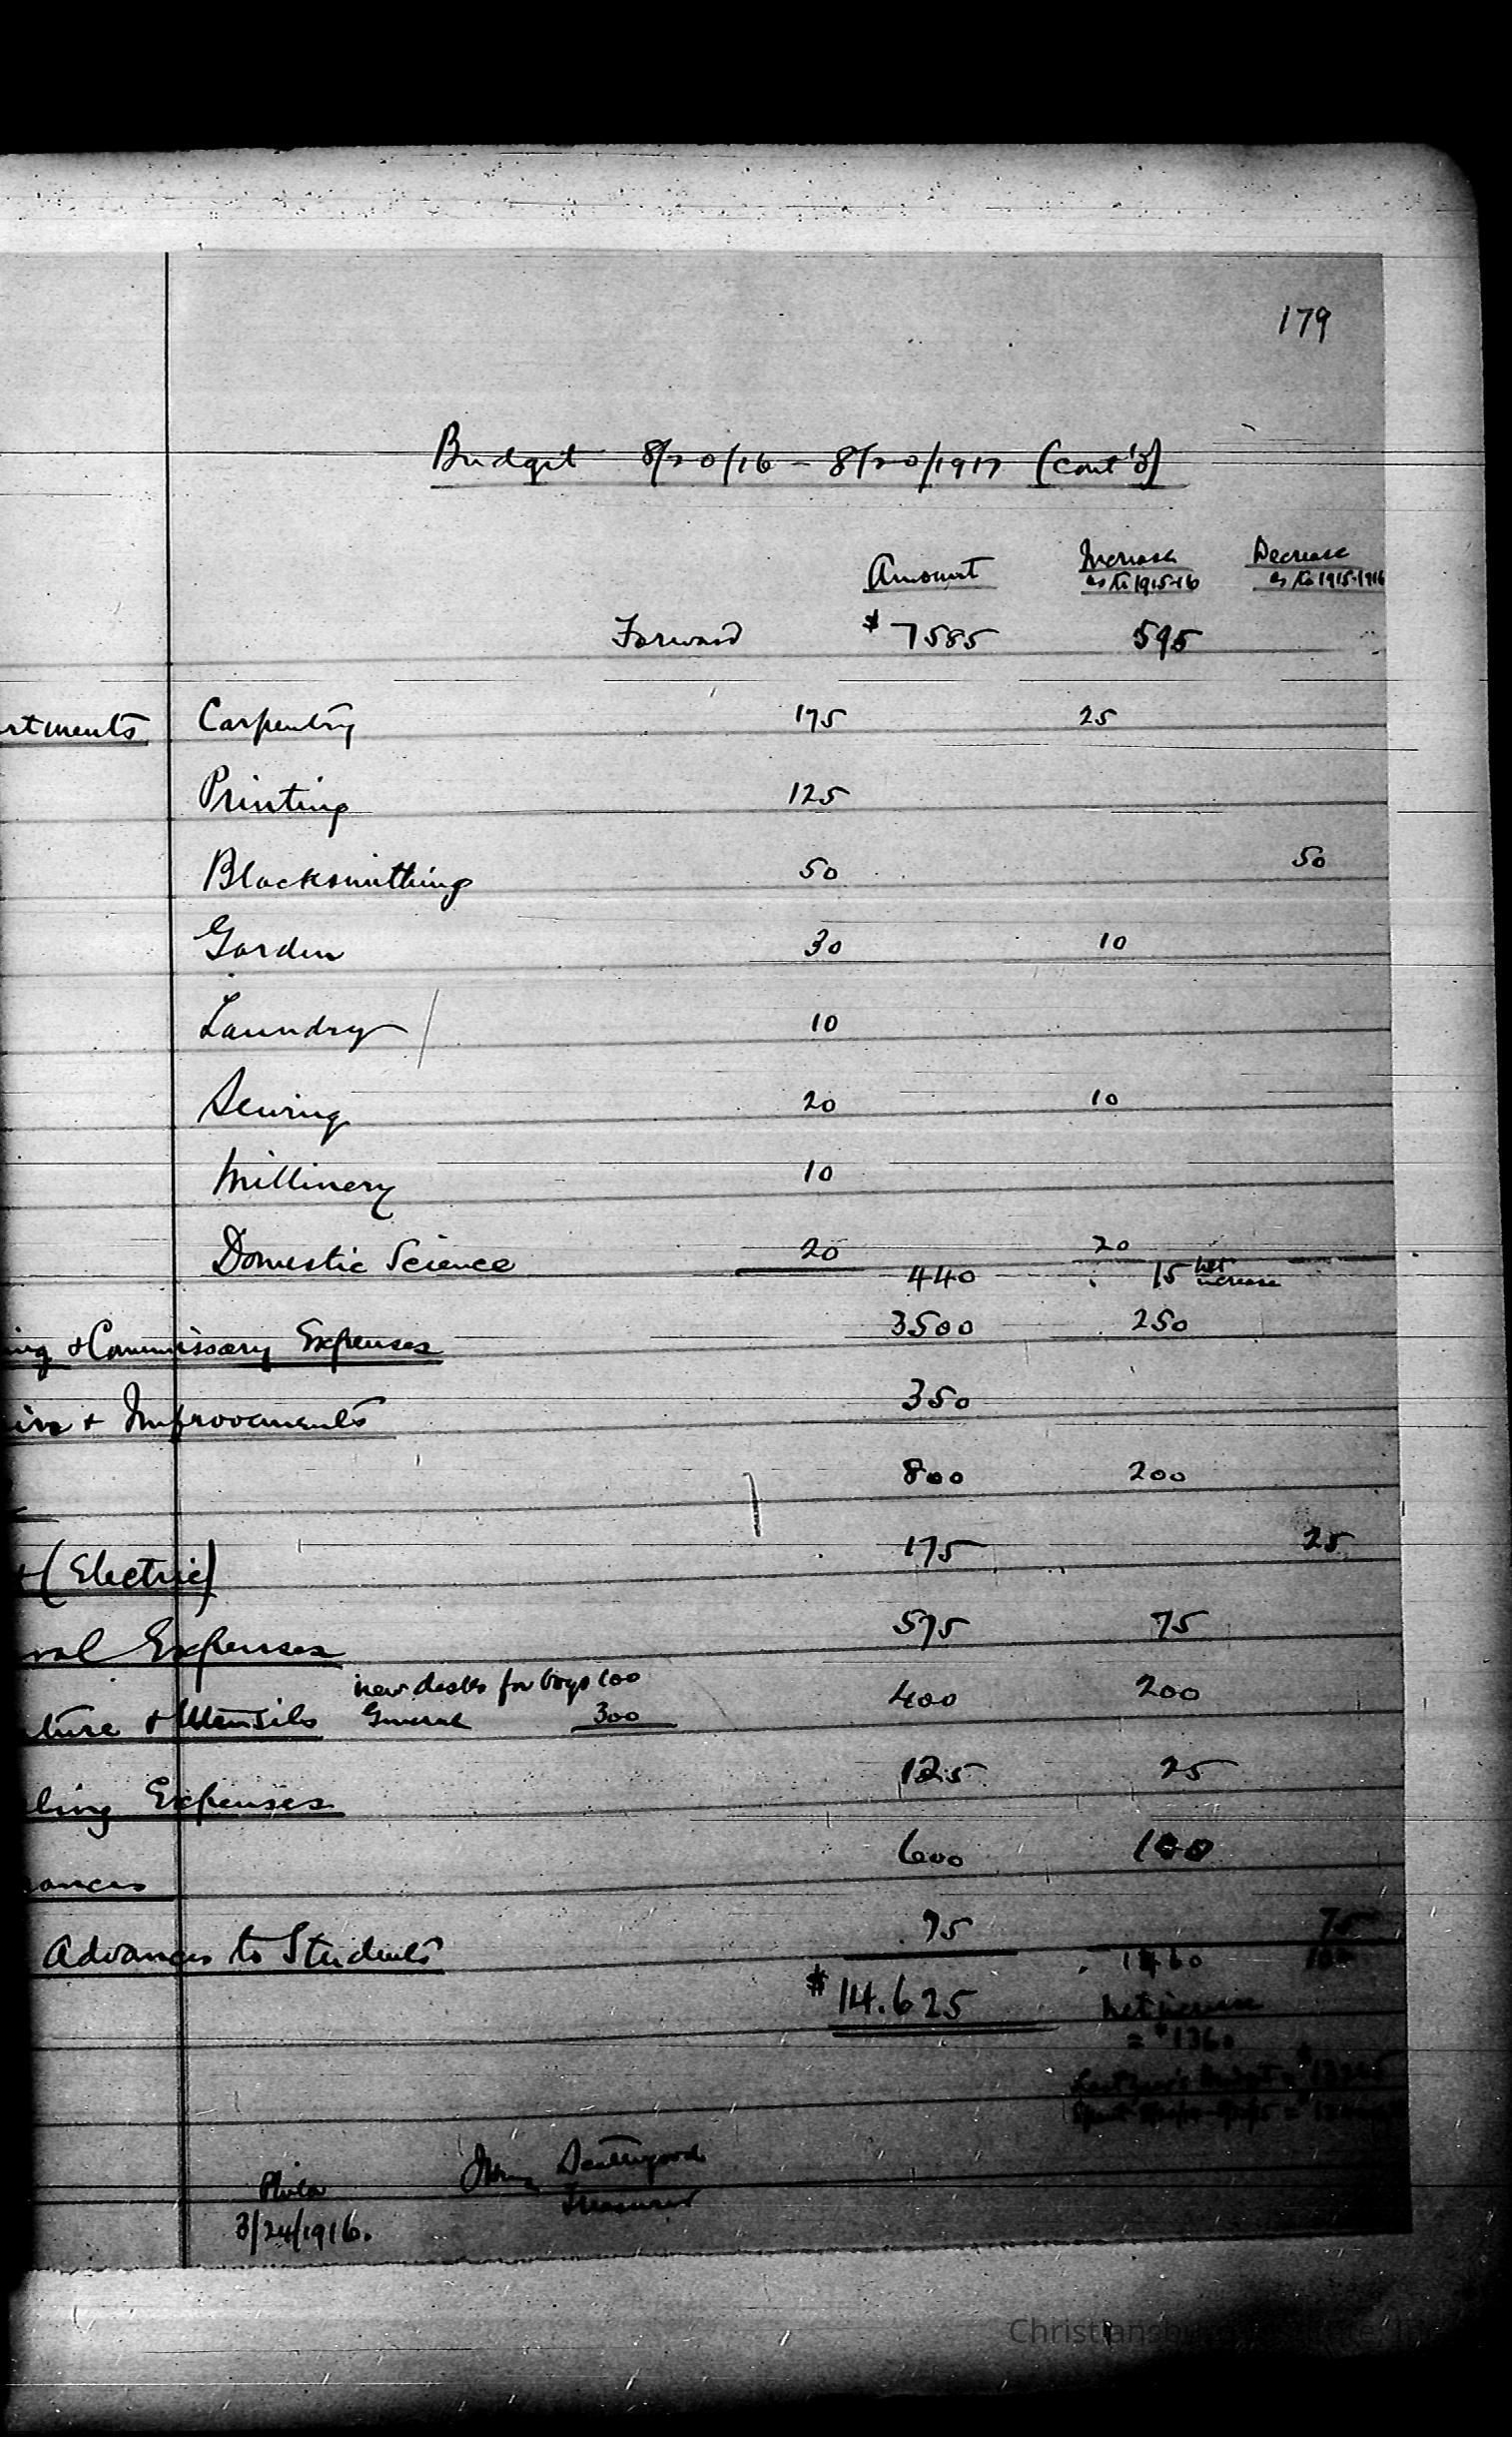 179
Budget 8/20/16 - 8/20/1917 (Cont'd)
Amount Increase as to 1915-16 Decrease as to 1915-1916
Forward $7585 595
rtments Carpentry 175 25
Printing 125
Blacksmithing 50 50
Garden 30 10
Laundry 10
Sewing 20 10
Millinery 10
Domestic Science 20 20
440 15 net increase
ing & Commissary Expenses 3500 250
irs & Improvements 350
800 200
t (Electric) 175 25
ral Expenses 575 75
new desks for boys 100
ture & Utensils General 300 400 200
ling Expenses 125 25
ances 600 100
Advances to Students 75 75
1460 100
$14.625
Net increase
= $1360
Last Year's Budget = $
Spent
Phila
Treasurer
3/24/1916.
Christiansburg Institute, Inc